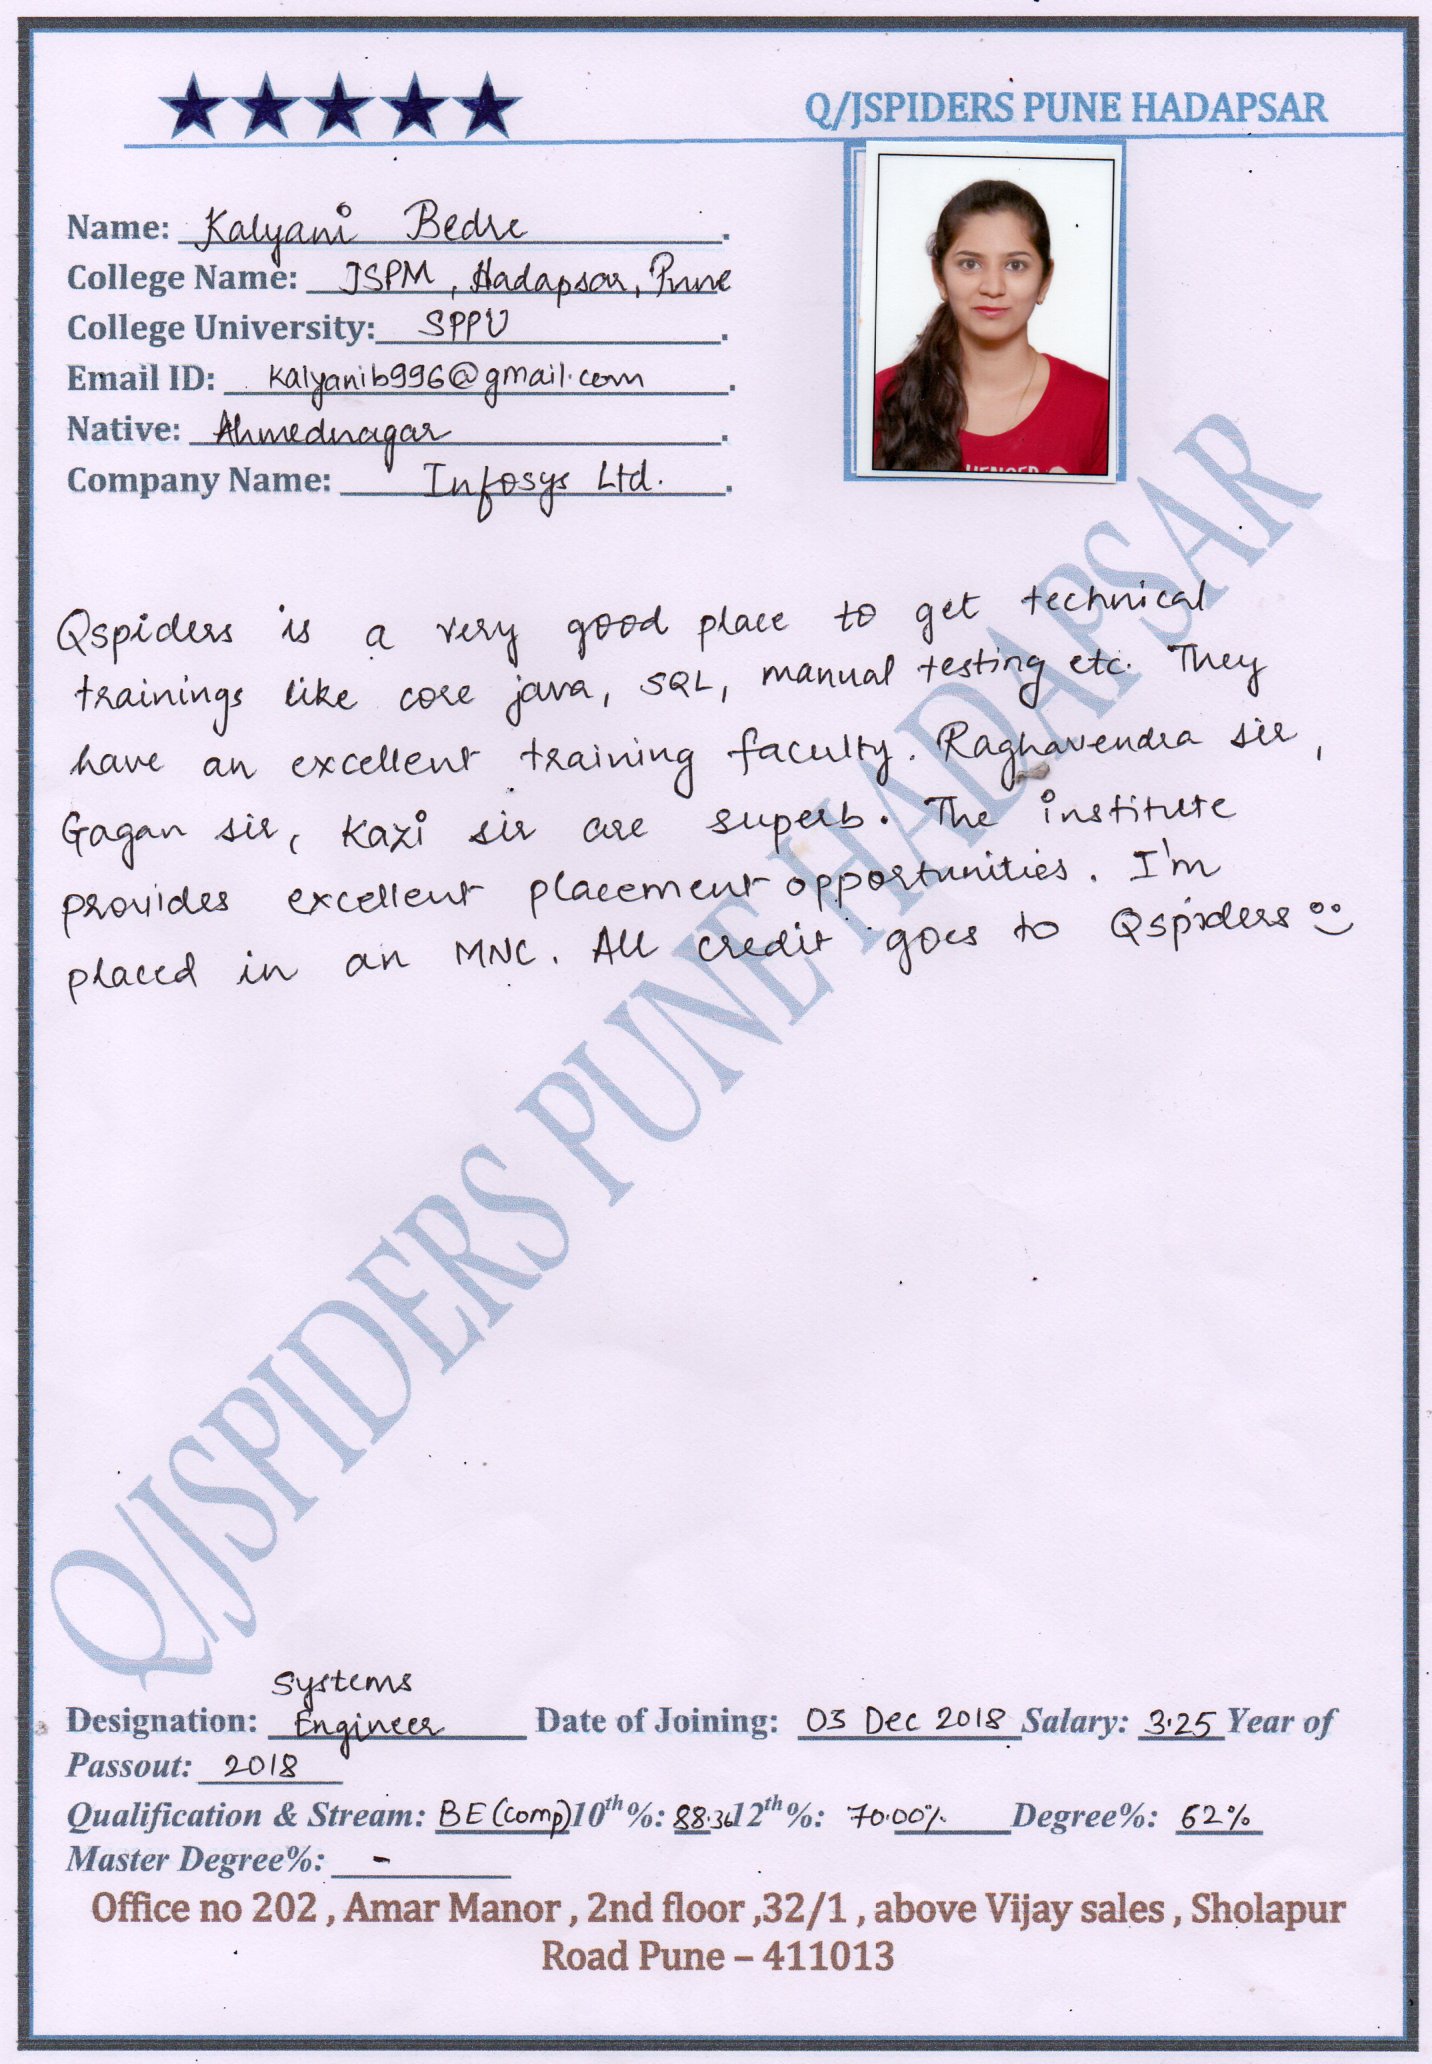 Q/JSPIDERS PUNE HADAPSAR
Name: Kalyani Bedre.
College Name: JSPM, Hadapsar, Pune
College University: SPPU.
Email ID: kalyanib996@gmail.com.
Native: Ahmednagar.
Company Name: Infosys Ltd..
HENGER
Qspiders is a very good place to get technical
trainings like core java, SQL, manual testing etc. They
have an excellent training faculty. Raghavendra sir,
Gagan sir, Kazi sir are superb. The institute
provides excellent placement opportunities. I'm
placed in an MNC. All credit goes to Qspiders
Q/JSPIDERS PUNE HADAPSAR
Systems
Designation: Engineer Date of Joining: 03 Dec 2018 Salary: 3.25 Year of
Passout: 2018
Qualification & Stream: BE (Comp) 10th%: 88.36 12th%: 70.00% Degree%: 62%
Master Degree%: -
Office no 202 , Amar Manor , 2nd floor ,32/1 , above Vijay sales , Sholapur
Road Pune – 411013